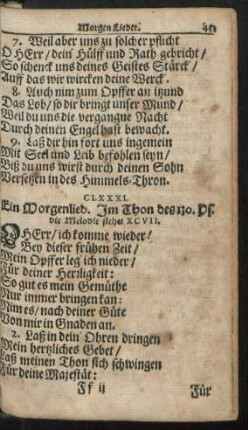 Morgen Lieder. 451
7. Weil aber uns zu solcher pflicht
O HErr / dein Hülff und Rath gebricht /
So schenck uns deines Geistes Stärck /
Auff das wir wircken deine Werck.
8. Auch nim zum Opffer an itzund
Das Lob / so dir bringt unser Mund /
Weil du uns die vergangne Nacht
Durch deinen Engel hast bewacht.
9. Laß dir hin fort uns ingemein
Mit Seel und Leib befohlen seyn /
Biß du uns wirst durch deinen Sohn
Versetzen in des Himmels-Thron.
CLXXXI.
Ein Morgenlied. Im Thon des 130. Ps.
die Melodie siehe XCVII.
O HErr / ich komme wieder /
Bey dieser frühen Zeit /
Mein Opffer leg ich nieder /
Für deiner Herrligkeit:
So gut es mein Gemüthe
Nur immer bringen kan:
Nim es / nach deiner Güte
Von mir in Gnaden an.
2. Laß in dein Ohren dringen
Mein hertzliches Gebet /
Laß meinen Thon sich schwingen
Für deine Majestät:
Ff ij Für